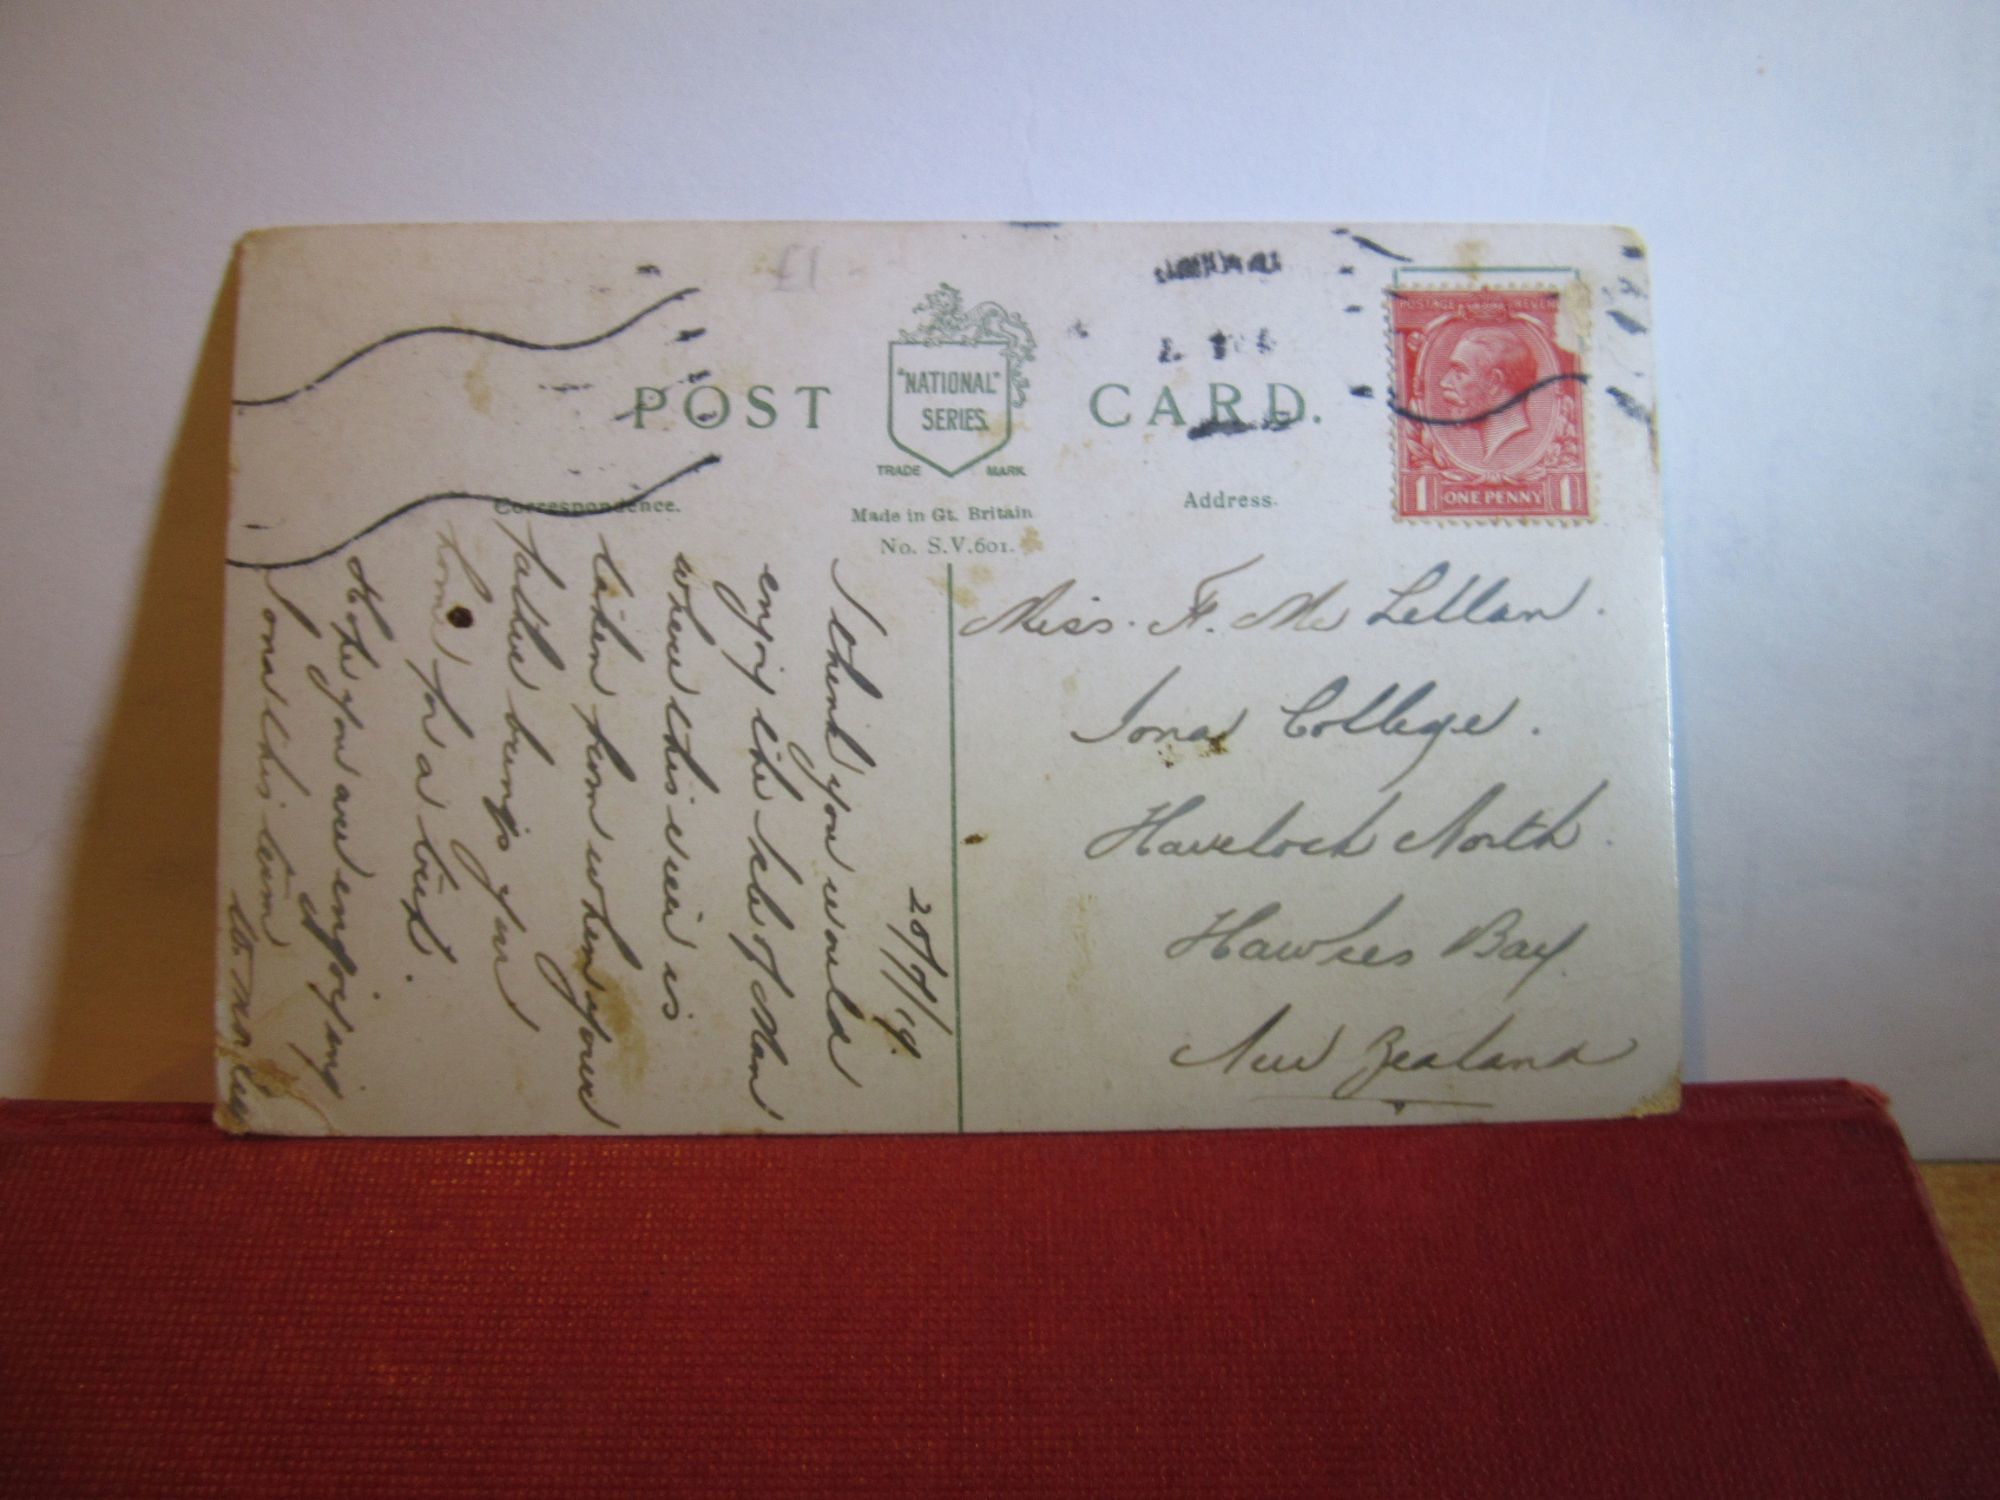 £1
POST CARD.
"NATIONAL"
SERIES.
TRADE MARK
Correspondence.
Made in Gt. Britain
No. S.V.601.
Address.
POSTAGE REVEN
1 ONE PENNY 1
20/7/19.
I think you would
enjoy the Isle of Man
where this view is
taken from when your
father brings you
home for a trip.
Hope you are enjoying
Iona this term
Miss. F. Mc Lellan.
Iona College.
Havelock North.
Hawkes Bay.
New Zealand